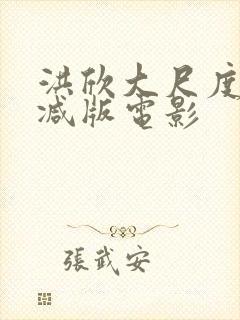 洪欣大尺度
减版電影
張武安